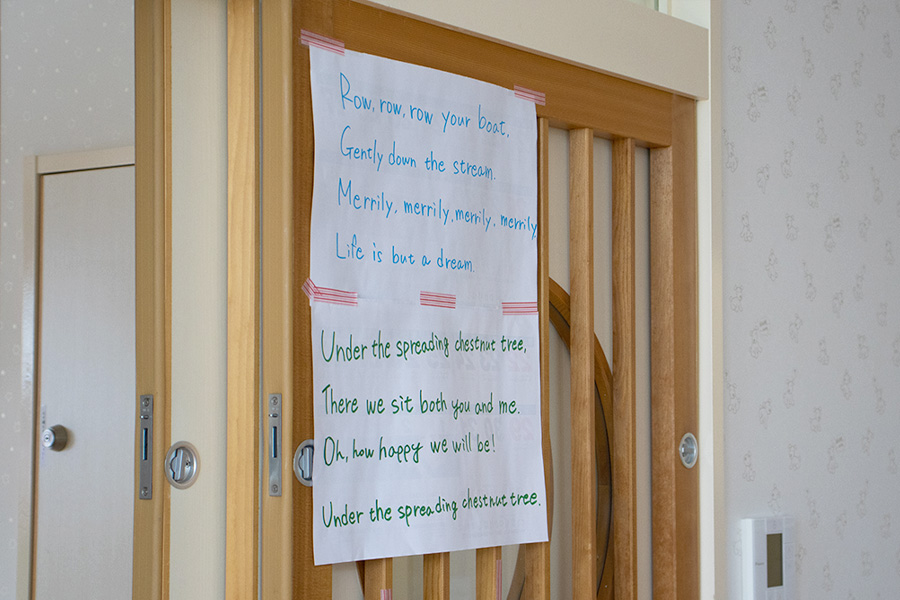 Row, row, row your boat,
Gently down the stream.
Merrily, merrily, merrily, merrily,
Life is but a dream.
Under the spreading chestnut tree,
There we sit both you and me.
Oh, how happy we will be!
Under the spreading chestnut tree.